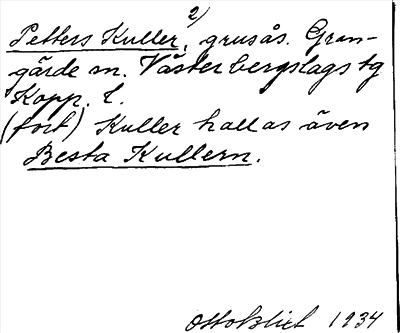 2)
Petters Kuller, grusås. Gran-
gärde sn. Västerbergslags tg
Kopp. l.
(forts) Kuller kallas även
Besta Kullern.
1934